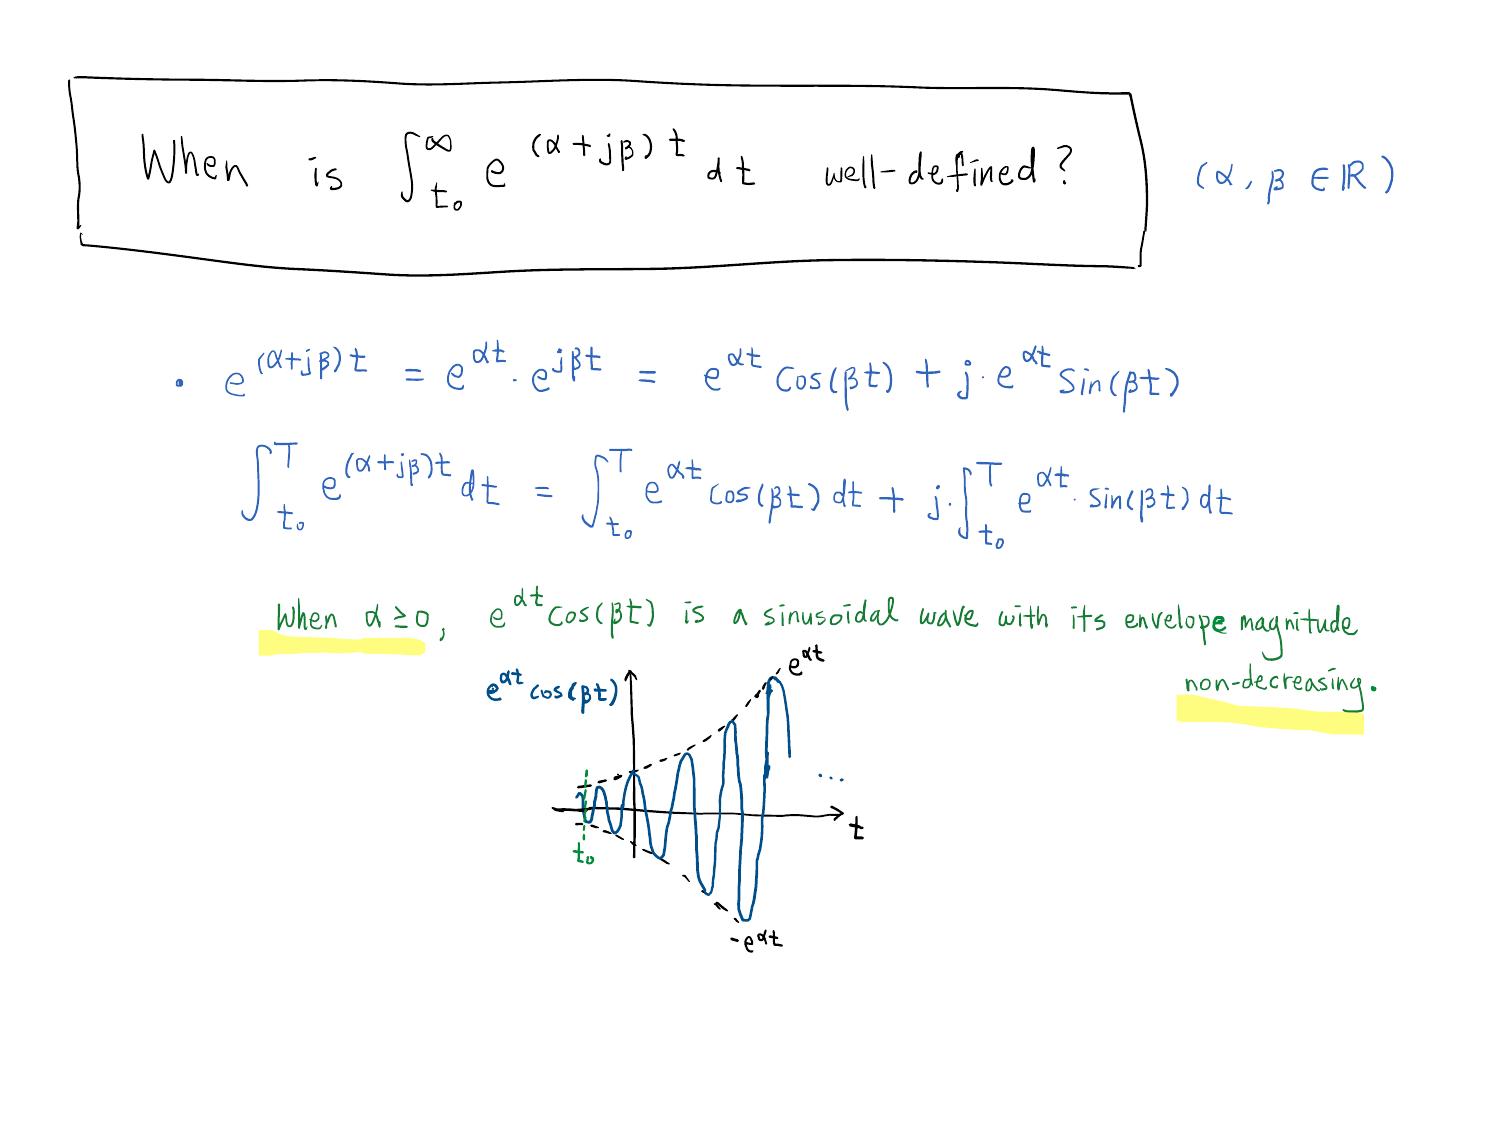 When is ∫_{t₀}^{∞} e^{(α+jβ)t} dt well-defined? (α, β ∈ ℝ)
• e^{(α+jβ)t} = e^{αt} · e^{jβt} = e^{αt} Cos(βt) + j · e^{αt} Sin(βt)
∫_{t₀}^{T} e^{(α+jβ)t} dt = ∫_{t₀}^{T} e^{αt} cos(βt) dt + j · ∫_{t₀}^{T} e^{αt} · sin(βt) dt
When α ≥ 0, e^{αt} cos(βt) is a sinusoidal wave with its envelope magnitude
non-decreasing.
e^{αt}
e^{αt} cos(βt)
...
t
t₀
-e^{αt}